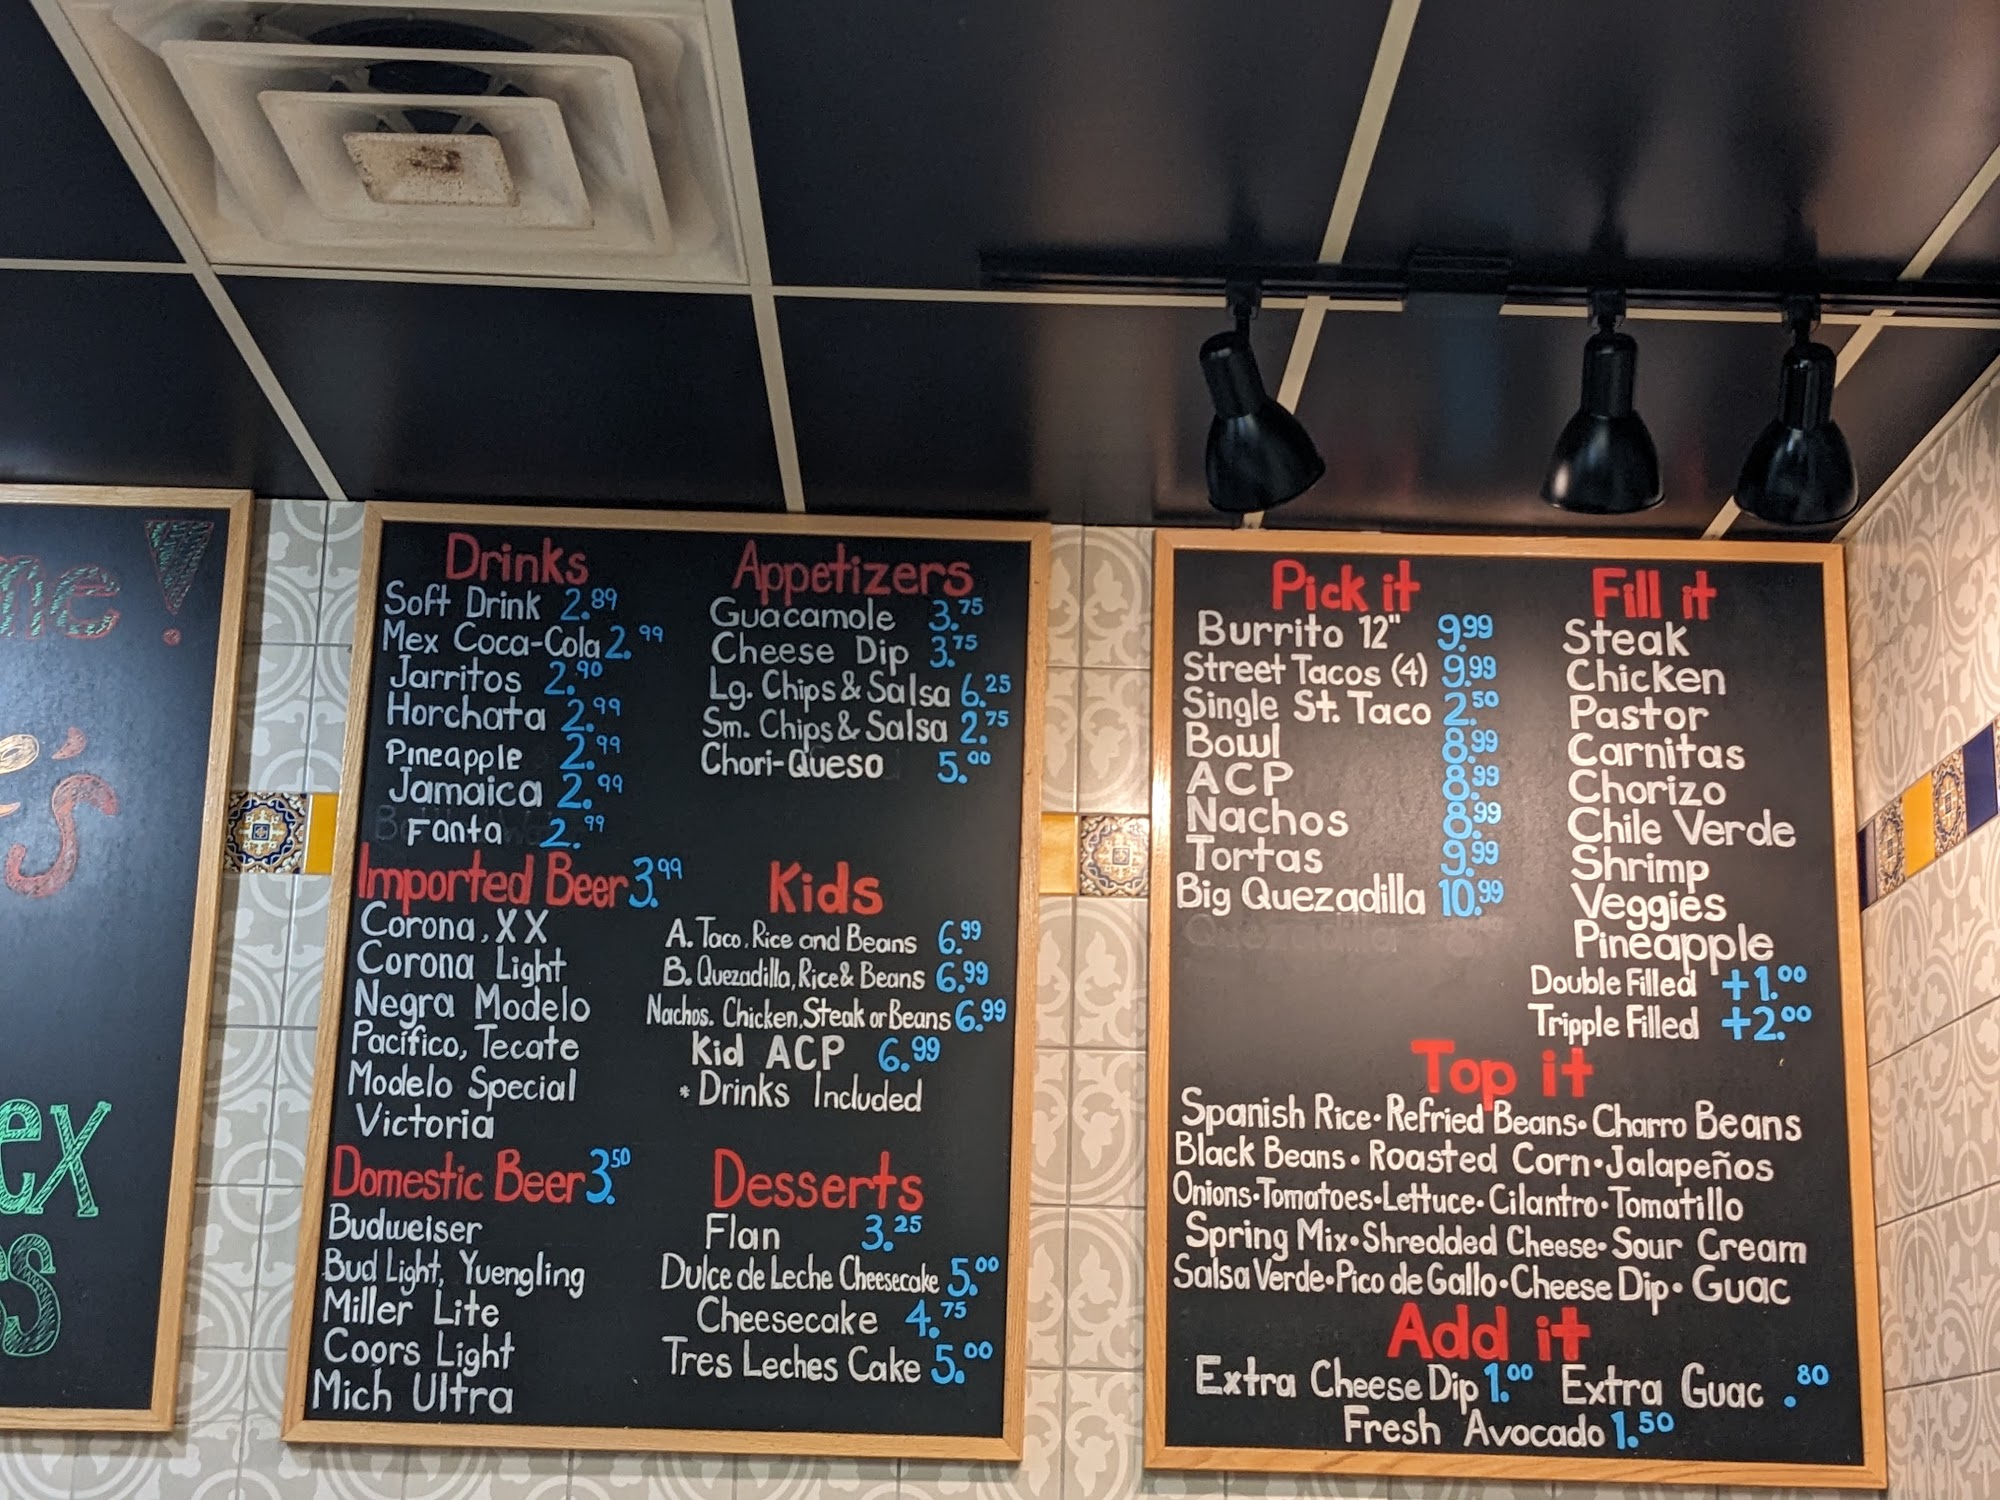 me!
's
ex
s
Drinks
Soft Drink 2.89
Mex Coca-Cola 2.99
Jarritos 2.90
Horchata 2.99
Pineapple 2.99
Jamaica 2.99
Fanta 2.99
Imported Beer 3.99
Corona, XX
Corona Light
Negra Modelo
Pacífico, Tecate
Modelo Special
Victoria
Domestic Beer 3.50
Budweiser
Bud Light, Yuengling
Miller Lite
Coors Light
Mich Ultra
Appetizers
Guacamole 3.75
Cheese Dip 3.75
Lg. Chips & Salsa 6.25
Sm. Chips & Salsa 2.75
Chori-Queso 5.00
Kids
A. Taco, Rice and Beans 6.99
B. Quezadilla, Rice & Beans 6.99
Nachos. Chicken, Steak or Beans 6.99
Kid ACP 6.99
* Drinks Included
Desserts
Flan 3.25
Dulce de Leche Cheesecake 5.00
Cheesecake 4.75
Tres Leches Cake 5.00
Pick it
Burrito 12" 9.99
Street Tacos (4) 9.99
Single St. Taco 2.50
Bowl 8.99
ACP 8.99
Nachos 8.99
Tortas 9.99
Big Quezadilla 10.99
Quezadilla
Fill it
Steak
Chicken
Pastor
Carnitas
Chorizo
Chile Verde
Shrimp
Veggies
Pineapple
Double Filled +1.00
Tripple Filled +2.00
Top it
Spanish Rice • Refried Beans • Charro Beans
Black Beans • Roasted Corn • Jalapeños
Onions • Tomatoes • Lettuce • Cilantro • Tomatillo
Spring Mix • Shredded Cheese • Sour Cream
Salsa Verde • Pico de Gallo • Cheese Dip • Guac
Add it
Extra Cheese Dip 1.00 Extra Guac .80
Fresh Avocado 1.50